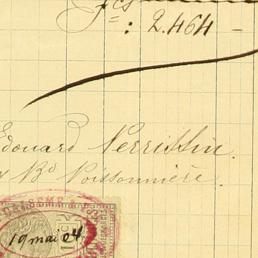 Fcs
: 2.464 -
Edouard Perrissin.
Bd Poissonnière.
19 mai 04